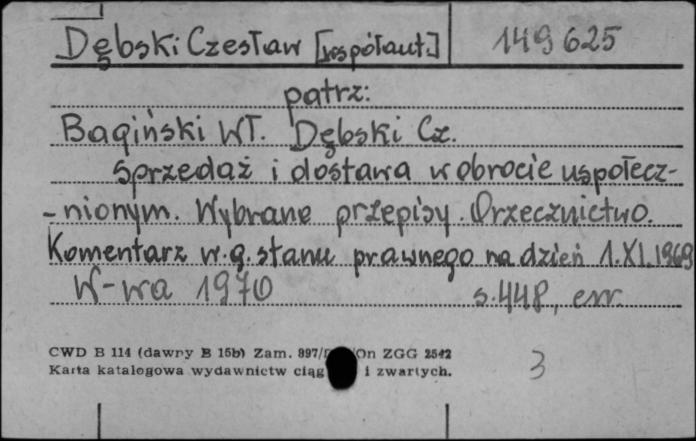 Dębski Czesław [współaut.] 149625
patrz:
Bagiński Wł. Dębski Cz.
Sprzedaż i dostawa w obrocie uspołecz-
-nionym. Wybrane przepisy. Orzecznictwo.
Komentarz w.g. stanu prawnego na dzień 1.XI.1969
W-wa 1970 s.448, err.
CWD B 114 (dawny B 15b) Zam. 897/ /On ZGG 2542
Karta katalogowa wydawnictw ciąg i zwartych.
3